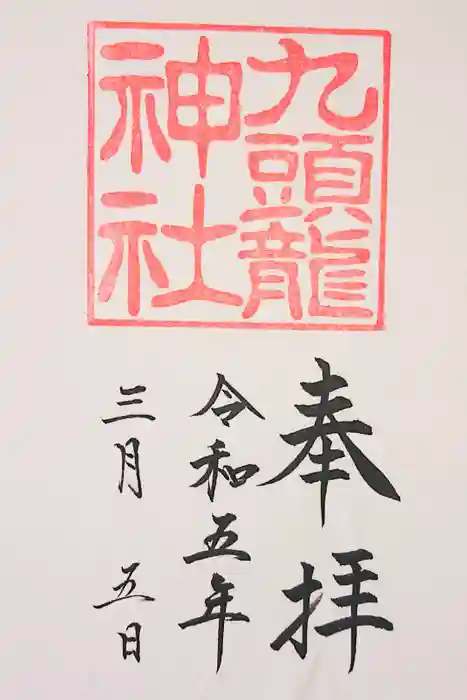 九頭龍
神社
奉拝
令和五年
三月 五日